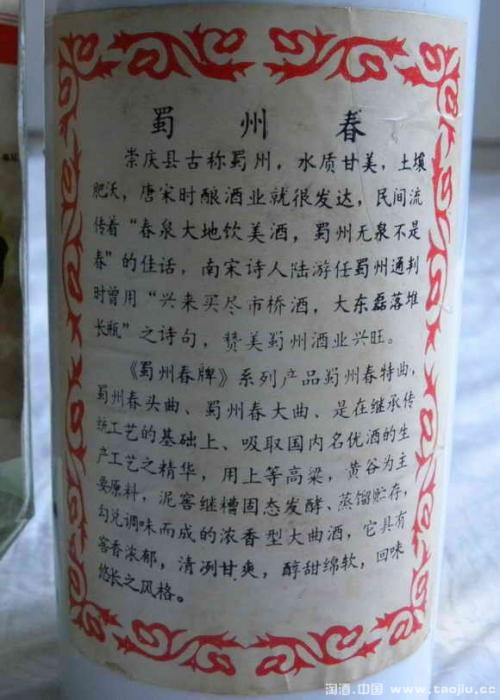 蜀州春
崇庆县古称蜀州，水质甘美，土壤
肥沃，唐宋时酿酒业就很发达，民间流
传着“春泉大地饮美酒，蜀州无泉不是
春”的佳话，南宋诗人陆游任蜀州通判
时曾用“兴来买尽市桥酒，大东磊落堆
长瓶”之诗句，赞美蜀州酒业兴旺。
《蜀州春牌》系列产品蜀州春特曲，
蜀州春头曲、蜀州春大曲、是在继承传
统工艺的基础上、吸取国内名优酒的生
产工艺之精华，用上等高粱，黄谷为主
要原料，泥窖继糟固态发酵、蒸馏贮存，
勾兑调味而成的浓香型大曲酒，它具有
窖香浓郁，清冽甘爽，醇甜绵软，回味
悠长之风格。
淘酒.中国 www.taojiu.cc